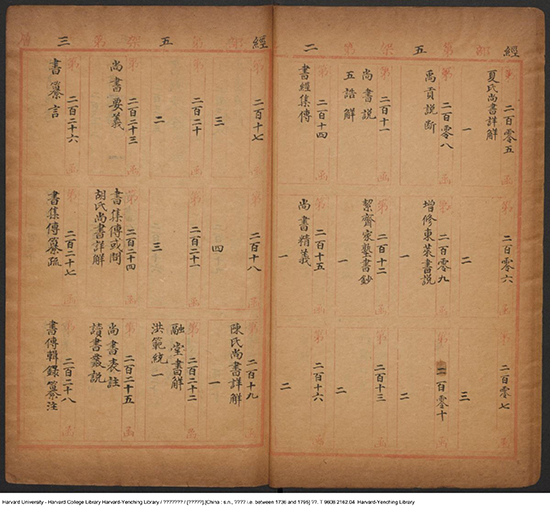 經部第五架第二
第二百零五函 第二百零六函 第二百零七函
夏氏尚書詳解 一 二 三
第二百零八函 第二百零九函 第二百零十函
禹貢說斷 增修東萊書說 一 二
第二百十一函 第二百十二函 第二百十三函
尚書說
五誥解 絜齋家塾書鈔 一 二
第二百十四函 第二百十五函 第二百十六函
書經集傳 尚書精義 一 二
經部第五架第三
第二百十七函 第二百十八函 第二百十九函
三 四 陳氏尚書詳解 一
第二百二十函 第二百二十一函 第二百二十二函
二 三 融堂書解
洪範統一
第二百二十三函 第二百二十四函 第二百二十五函
尚書要義 書集傳或問 尚書表註
胡氏尚書詳解 讀書叢說
第二百二十六函 第二百二十七函 第二百二十八函
書纂言 書集傳纂疏 書傳輯錄纂注
Harvard University - Harvard College Library Harvard-Yenching Library / ??????? / [?????].[China : s.n., ???? i.e. between 1736 and 1795] ??. T 9608 2142.04 Harvard-Yenching Library